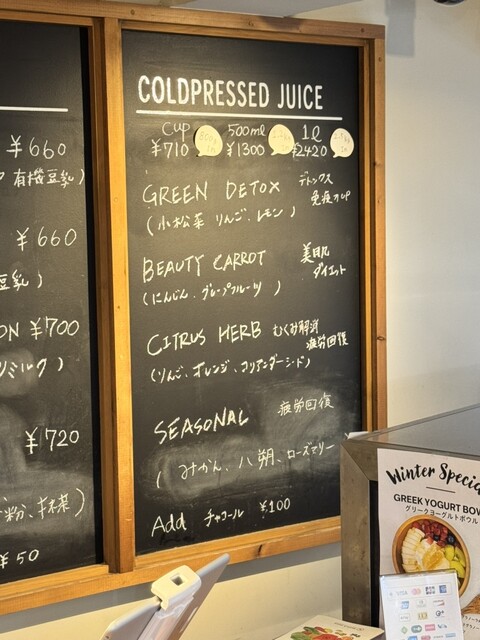 ¥660
有機豆乳)
¥660
豆乳)
ON ¥700
ミルク)
¥720
粉、抹茶)
¥50
COLDPRESSED JUICE
Cup 500ml 1l
¥710 ¥1300 ¥2420
GREEN DETOX デトックス
免疫力UP
(小松菜 りんご、レモン)
BEAUTY CARROT 美肌
ダイエット
(にんじん、グレープフルーツ)
CITRUS HERB むくみ解消
疲労回復
(りんご、オレンジ、コリアンダーシード)
SEASONAL 疲労回復
(みかん、八朔、ローズマリー)
Add チャコール ¥100
Winter Specia
GREEK YOGURT BOW
グリークヨーグルトボウル